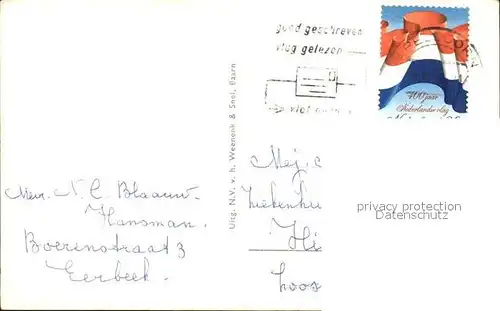 goed geschreven
vlug gelezen
400 jaar
Nederlandse vlag
Uitg. N.V. v. h. Weenenk & Snel, Baarn
Mevr. N. C. Blaauw-
Hansman.
Boerenstraat 3
Eerbeek.
Mej.
Ziekenhu
Hi
Loos
privacy protection
Datenschutz